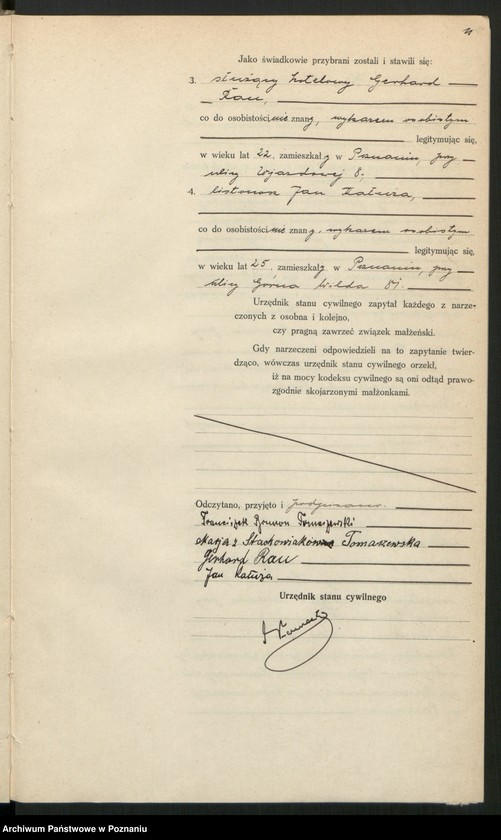 Jako świadkowie przybrani zostali i stawili się:
3. służący hotelowy Gerhard
Rau,
co do osobistości nie znany, wykazem osobistym
legitymując się,
w wieku lat 22, zamieszkały w Poznaniu, przy
ulicy Wjazdowej 8.
4. listonosz Jan Kałuża,
co do osobistości nie znany, wykazem osobistym
legitymując się,
w wieku lat 25, zamieszkały w Poznaniu, przy
ulicy Górna Wilda 81.
Urzędnik stanu cywilnego zapytał każdego z narze-
czonych z osobna i kolejno,
czy pragną zawrzeć związek małżeński.
Gdy narzeczeni odpowiedzieli na to zapytanie twier-
dząco, wówczas urzędnik stanu cywilnego orzekł,
iż na mocy kodeksu cywilnego są oni odtąd prawo-
zgodnie skojarzonymi małżonkami.
Odczytano, przyjęto i podpisano.
Franciszek Roman Tomaszewski
Marja z Stachowiaków Tomaszewska
Gerhard Rau
Jan Kałuża
Urzędnik stanu cywilnego
Archiwum Państwowe w Poznaniu